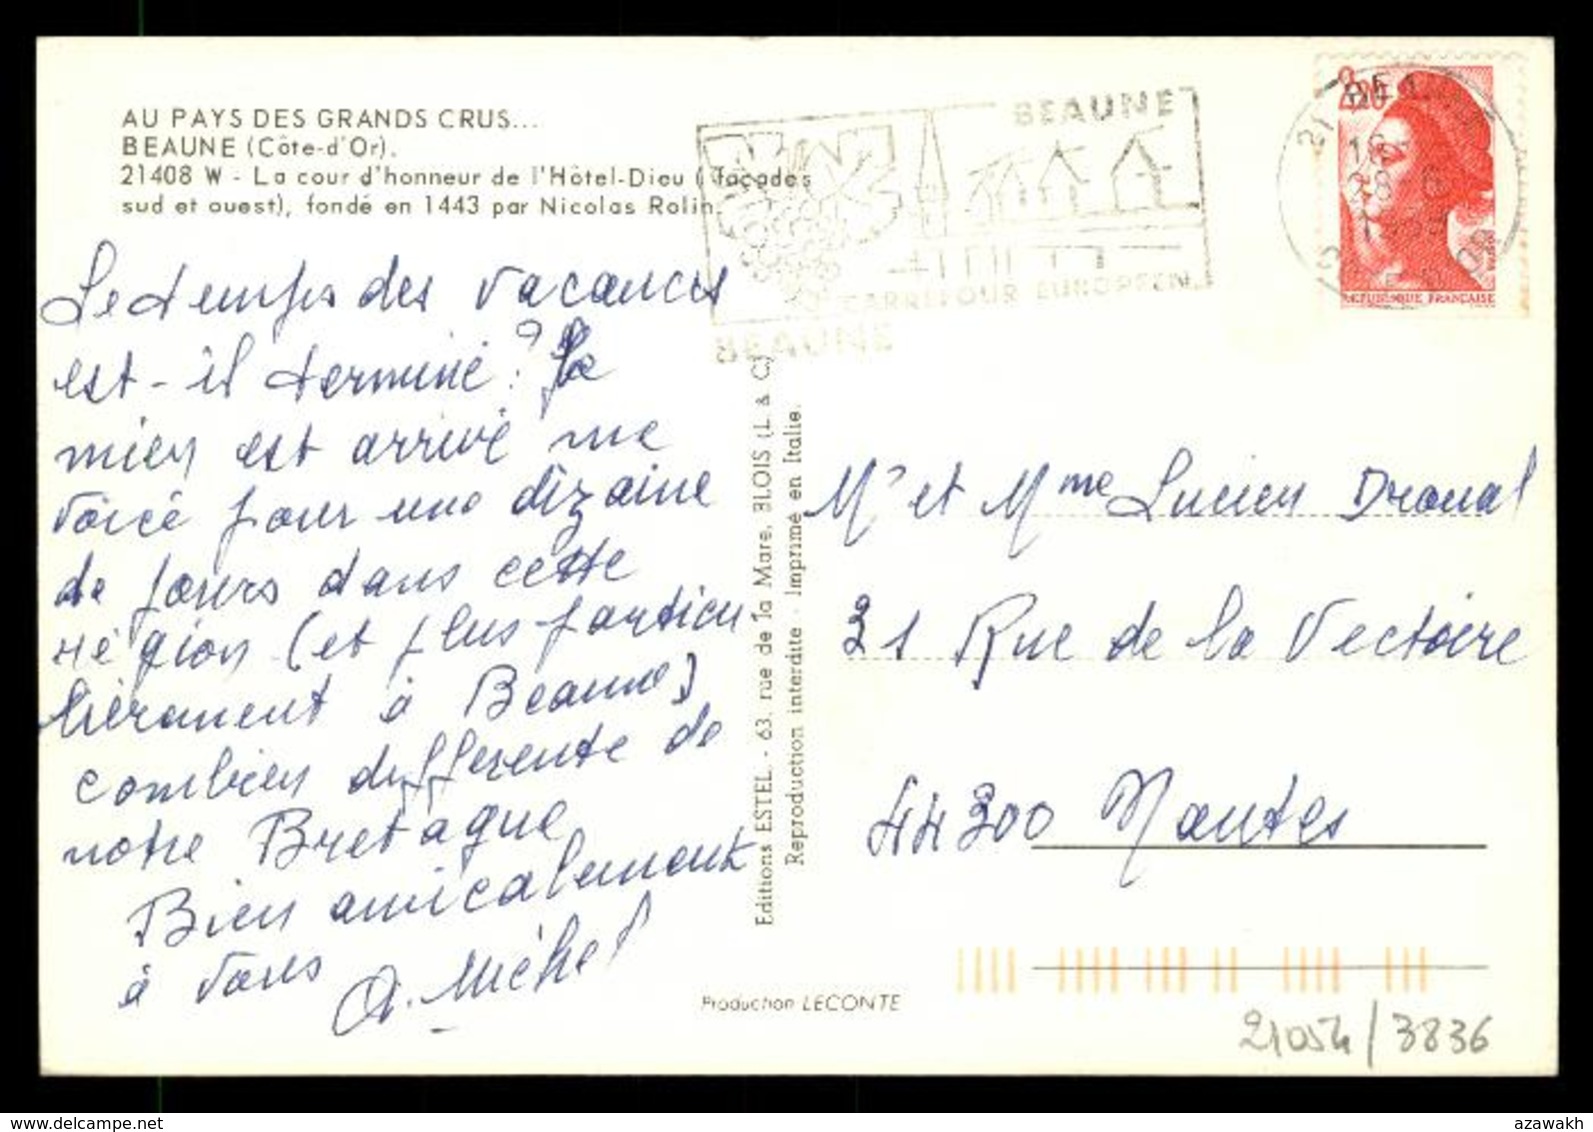 AU PAYS DES GRANDS CRUS...
BEAUNE (Côte-d'Or).
21408 W - La cour d'honneur de l'Hôtel-Dieu (façades
sud et ouest), fondé en 1443 par Nicolas Rolin.
Le temps des vacances
est-il terminé ? Le
mien est arrivé me
voici pour une dizaine
de jours dans cette
région (et plus particu
lièrement à Beaune)
combien différente de
notre Bretagne
Bien amicalement
à vous
A. Michel
BEAUNE
CARREFOUR EUROPEEN
BEAUNE
2,20
REPUBLIQUE FRANÇAISE
Editions ESTEL. - 63, rue de la Mare, BLOIS (L. & C.)
Reproduction interdite - Imprimé en Italie.
Mr et Mme Lucien Droual
21 Rue de la Victoire
44300 Nantes
Production LECONTE
21054/3836
www.delcampe.net
azawakh